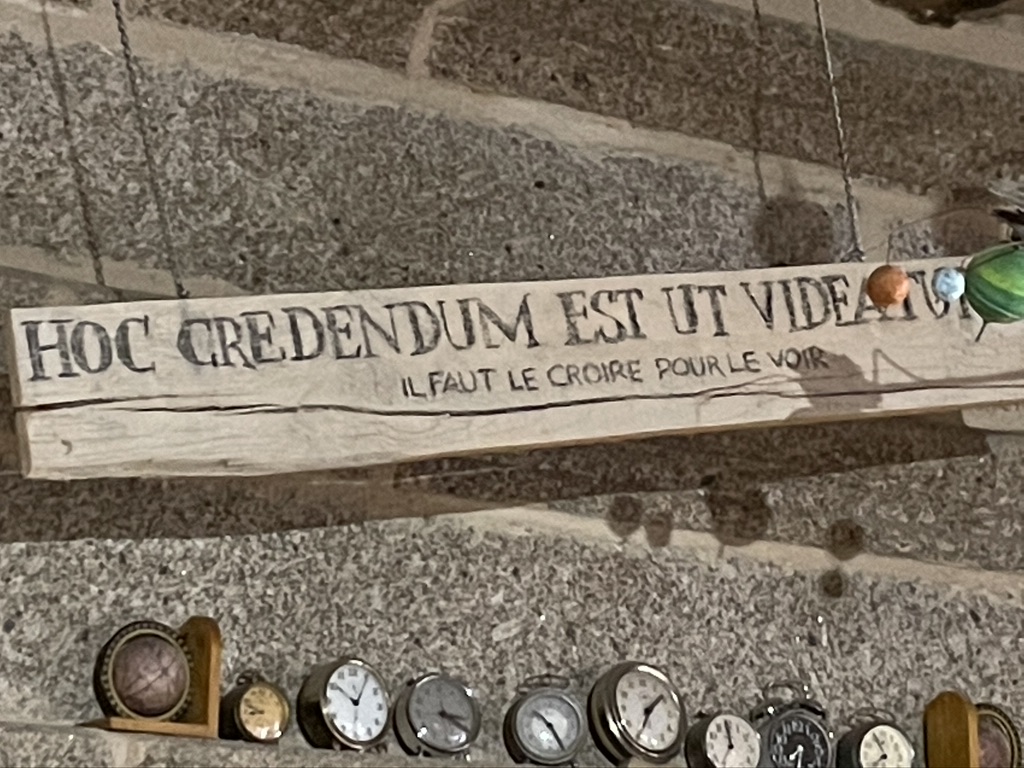 HOC CREDENDUM EST UT VIDEATVR
IL FAUT LE CROIRE POUR LE VOIR